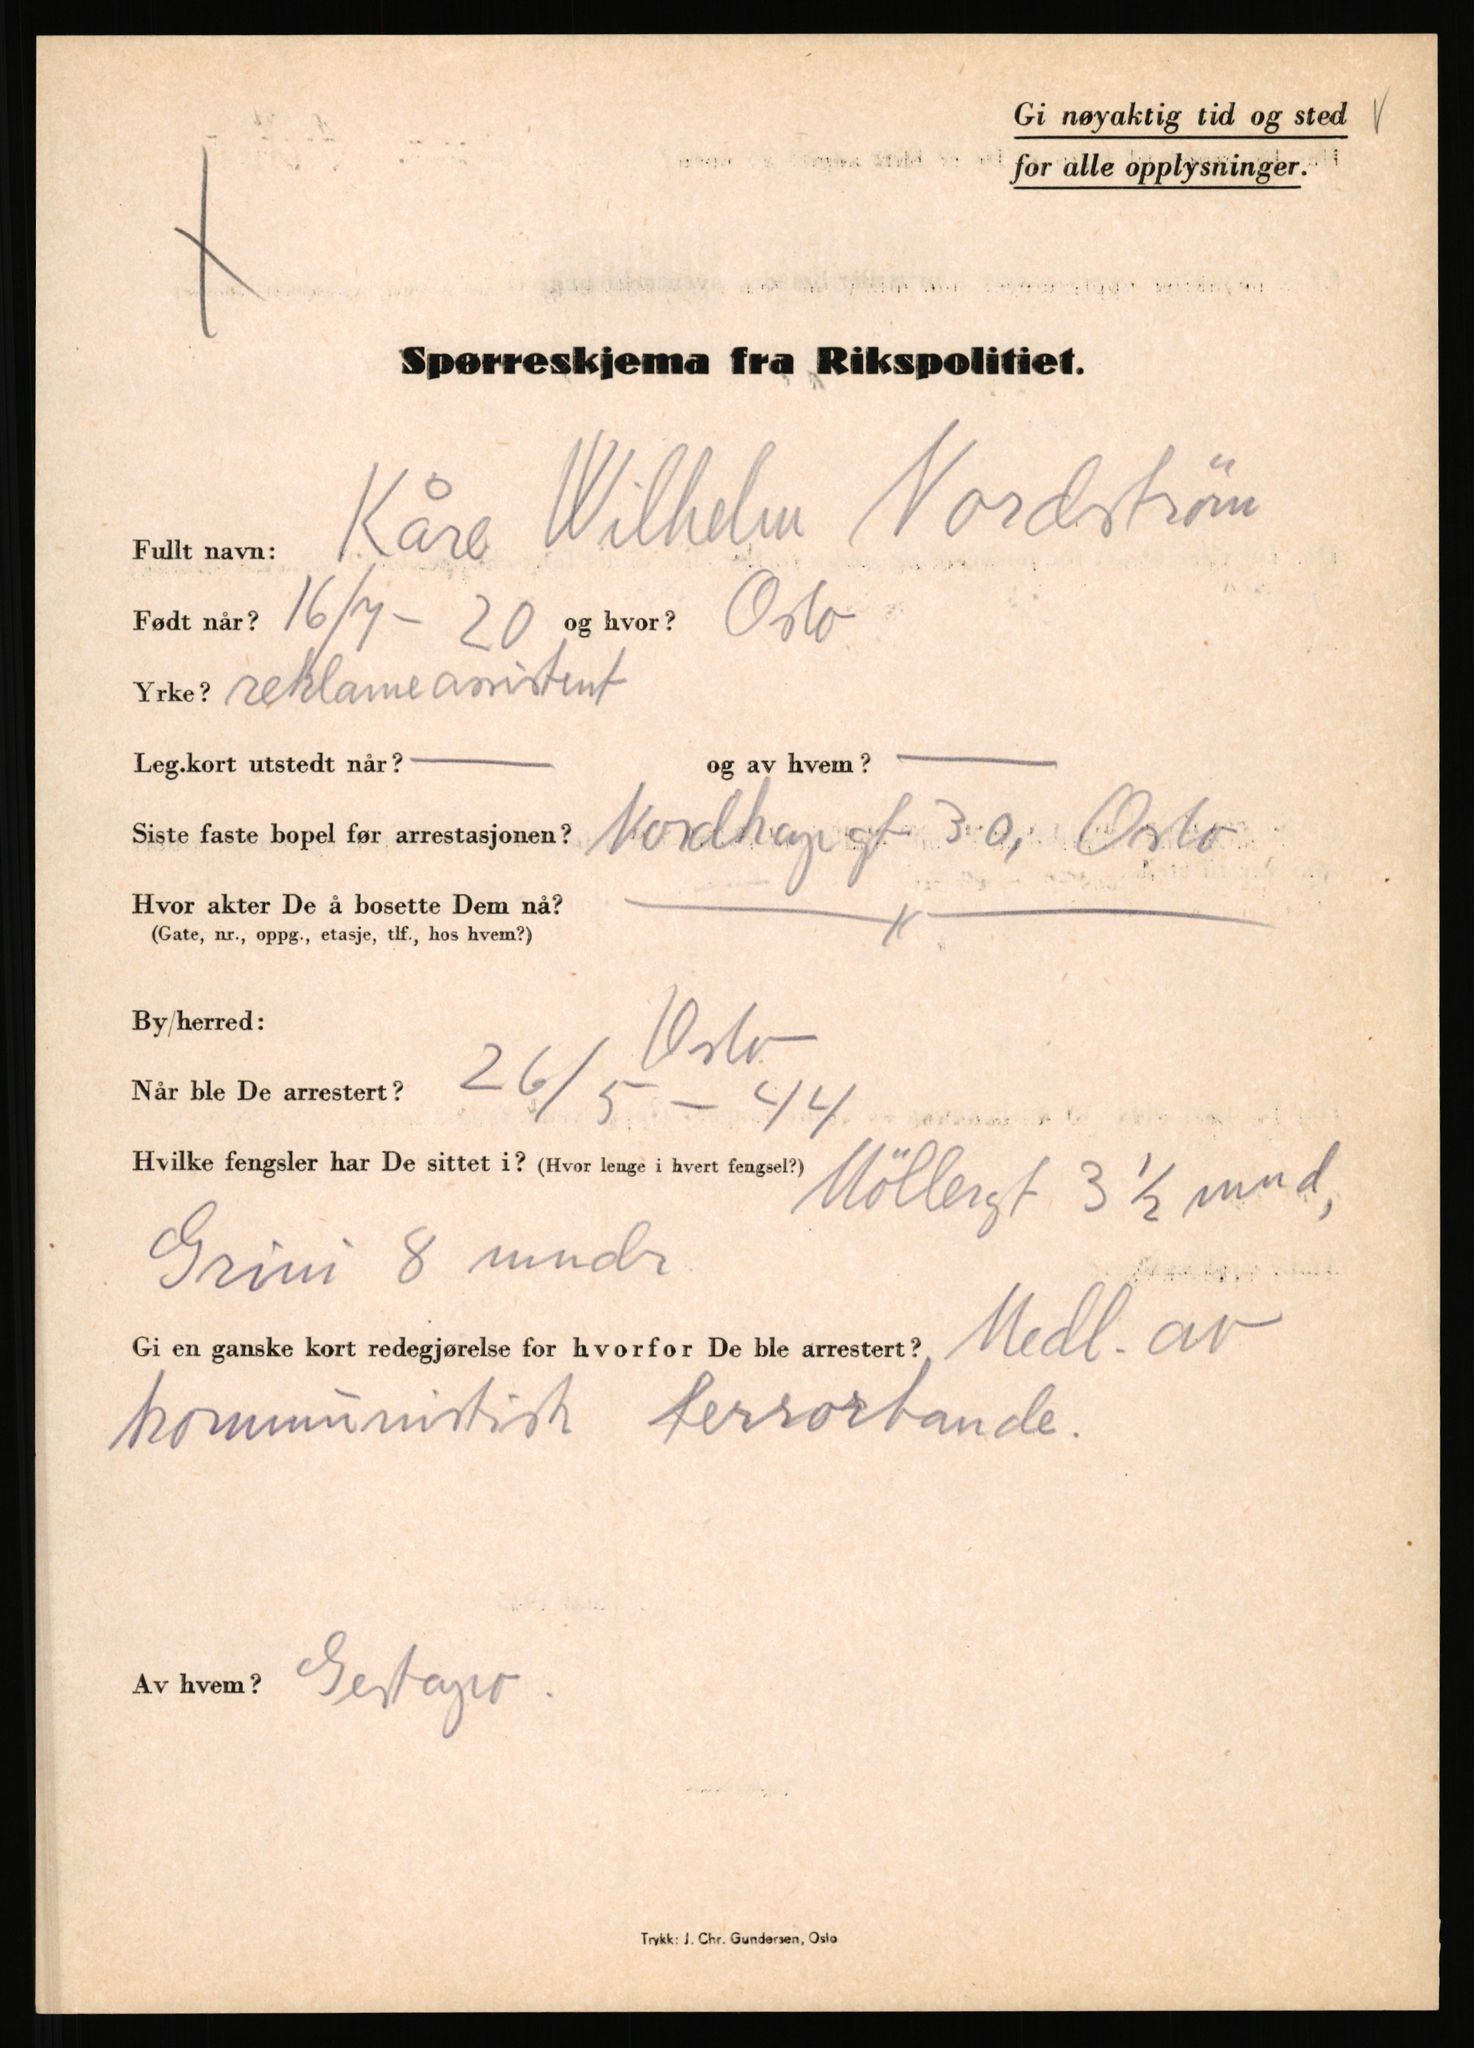 Gi nøyaktig tid og sted
for alle opplysninger.
Spørreskjema fra Rikspolitiet.
Fullt navn: Kåre Wilhelm Nordström
Født når? 16/7 – 20 og hvor? Oslo
Yrke? reklameassistent
Leg.kort utstedt når? — og av hvem? —
Siste faste bopel før arrestasjonen? 30, Oslo
Hvor akter De å bosette Dem nå?
(Gate, nr., oppg., etasje, tlf., hos hvem?)
By/herred: Oslo
Når ble De arrestert? 26/5 – 44
Hvilke fengsler har De sittet i? (Hvor lenge i hvert fengsel?) Möllergt 3 ½ mnd,
Grini 8 mndr
Gi en ganske kort redegjørelse for hvorfor De ble arrestert? Medl. av
kommunistisk terrorbande.
Av hvem? Gestapo.
Trykk: J. Chr. Gundersen, Oslo